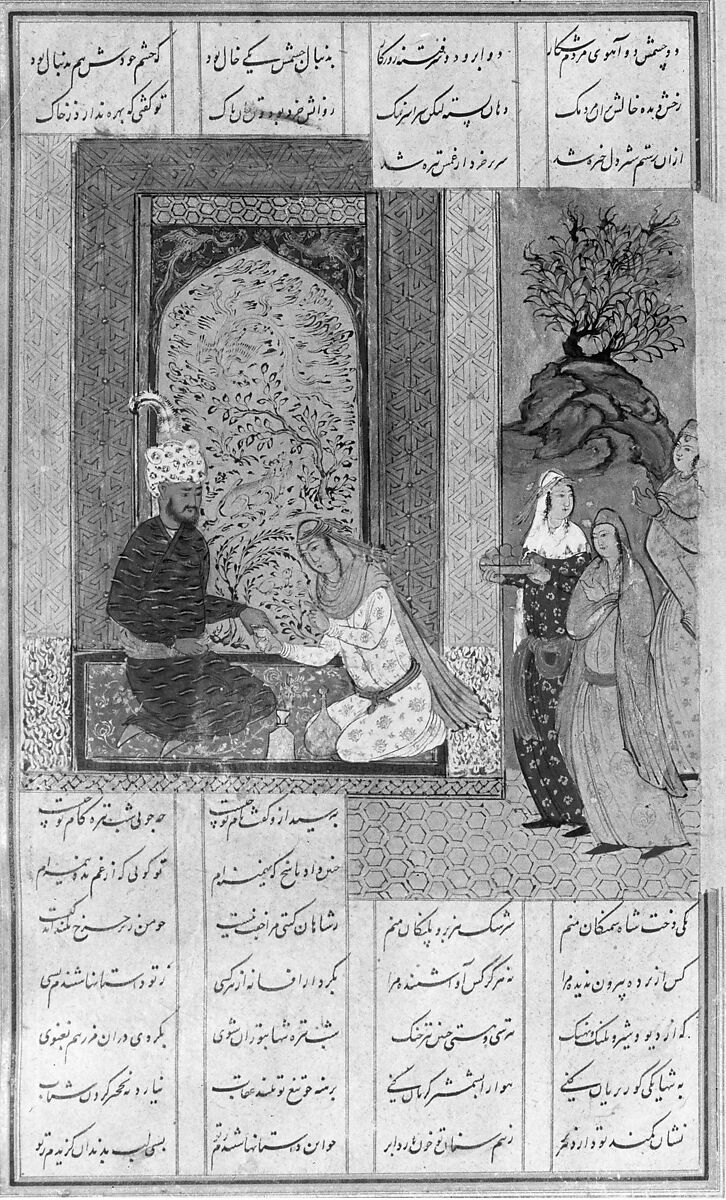 دو چشمش دو آهوی مردم شکار دو ابرو دو فتنه روزگار بدنبال چشمش یکی خال بود که چشم خودش هم بدنبال بود
رخش دیده خالش بران مردمک دهان پسته لیکن سراسر نمک روانش خرد بود و تن پاک تو گفتی که بهره ندارد ز خاک
ازان رستم شیردل خیره شد سر بر خرد از غمش تیره شد
بپرسید ازو گفت نام تو چیست چه جویی شب تیره کام تو چیست
چنین داد پاسخ که تهمینه ام تو گویی که از غم بدو نیمه ام
یکی دخت شاه سمنگان منم هزبر و پلنگان منم ز شاهان گیتی مرا جفت نیست چو من زیر چرخ بلند اندکیست
کس از پرده بیرون ندیده مرا نه هرگز کس آوا شنیده مرا بکردار افسانه از هر کسی ز تو داستانها شنیدم بسی
که از دیو و شیر و پلنگ و نهنگ نترسی و هستی چنین تیزچنگ شب تیره تنها بتوران شوی بگردی دران مرز هم نغنوی
به تنها یکی گور بریان کنی هوا را بشمشیر گریان کنی برهنه چو تیغ تو بیند عقاب نیارد به نخچیر کردن شتاب
نشان کمند تو دارد هزبر ز بیم سنان تو خون بارد ابر چو این داستانها شنیدم ز تو بسی لب بدندان گزیدم ز تو